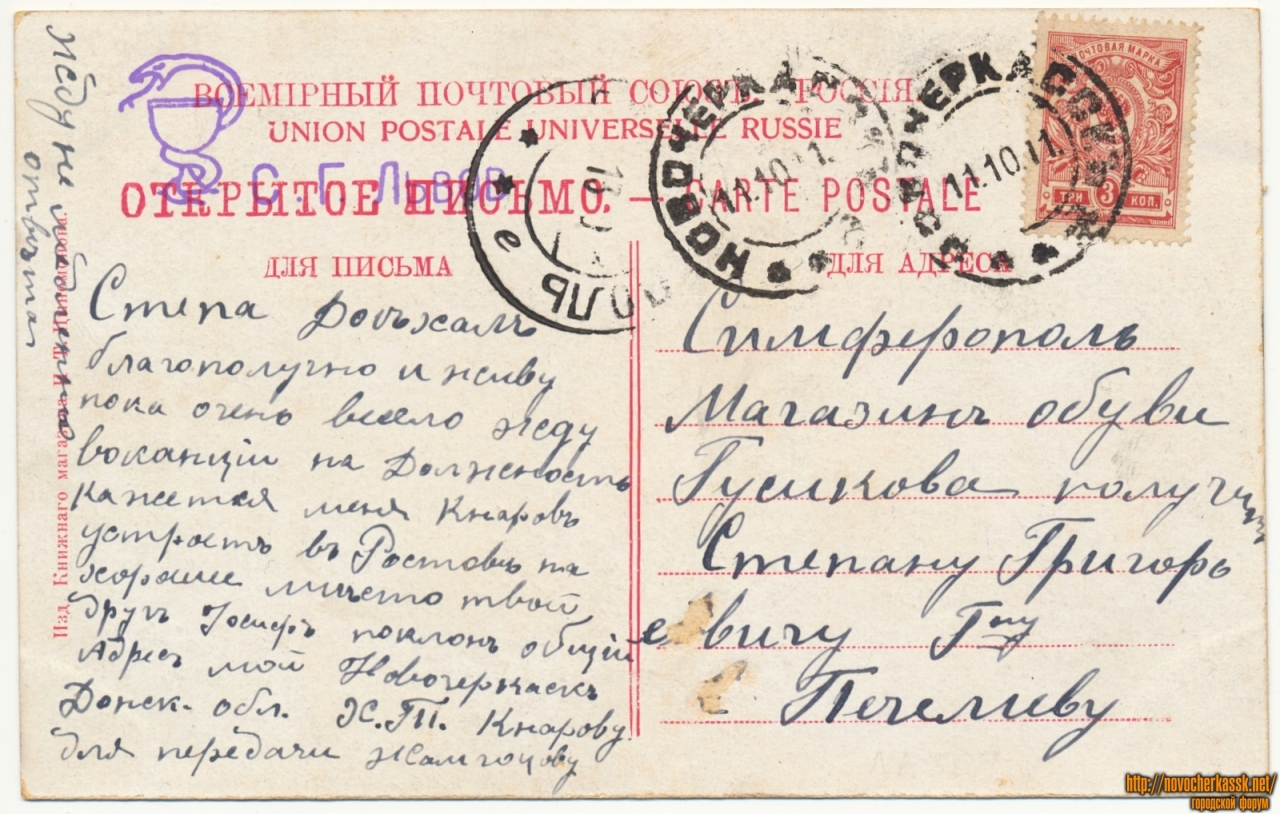 ВСЕМІРНЫЙ ПОЧТОВЫЙ СОЮЗЪ. РОССІЯ.
UNION POSTALE UNIVERSELLE RUSSIE
С. Г. Львов
ОТКРЫТОЕ ПИСЬМО. — CARTE POSTALE
ДЛЯ ПИСЬМА
ДЛЯ АДРЕСА
ПОЧТОВАЯ МАРКА
ТРИ 3 КОП.
НОВОЧЕРКАССКЪ
11.10.11.
НОВОЧЕРКАССКЪ
11.10.11.
Степа Доѣхалъ
благополучно и живу
пока очень весело жду
воканціи на Должность
кажетъся меня Кнаровъ
устроетъ въ Ростовъ на
хорошие мѣсто твой
другъ Іосифъ поклонъ общій
Адресъ мой Новочеркаскъ
Донск. обл. Х.Т. Кнарову
для передачи Жамгоцову
Жду не
отвѣта
Изд. Книжнаго магазина И. Т.
Симферополь
Магазинъ обуви
Гусикова получить
Степану Григорь
евичу Гну
Печеливу
http://novocherkassk.net/
городской форум